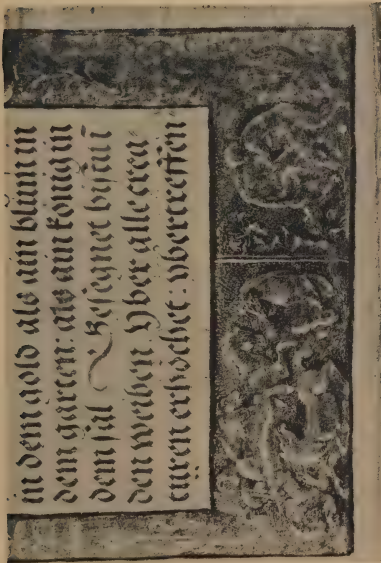 in dem gold als ain blům in
dem garten: als ain könig in
dem sal Gesegnet bistu ī
den weiben. Vber alle crea⸗
turen erhöchet. vbertreffen